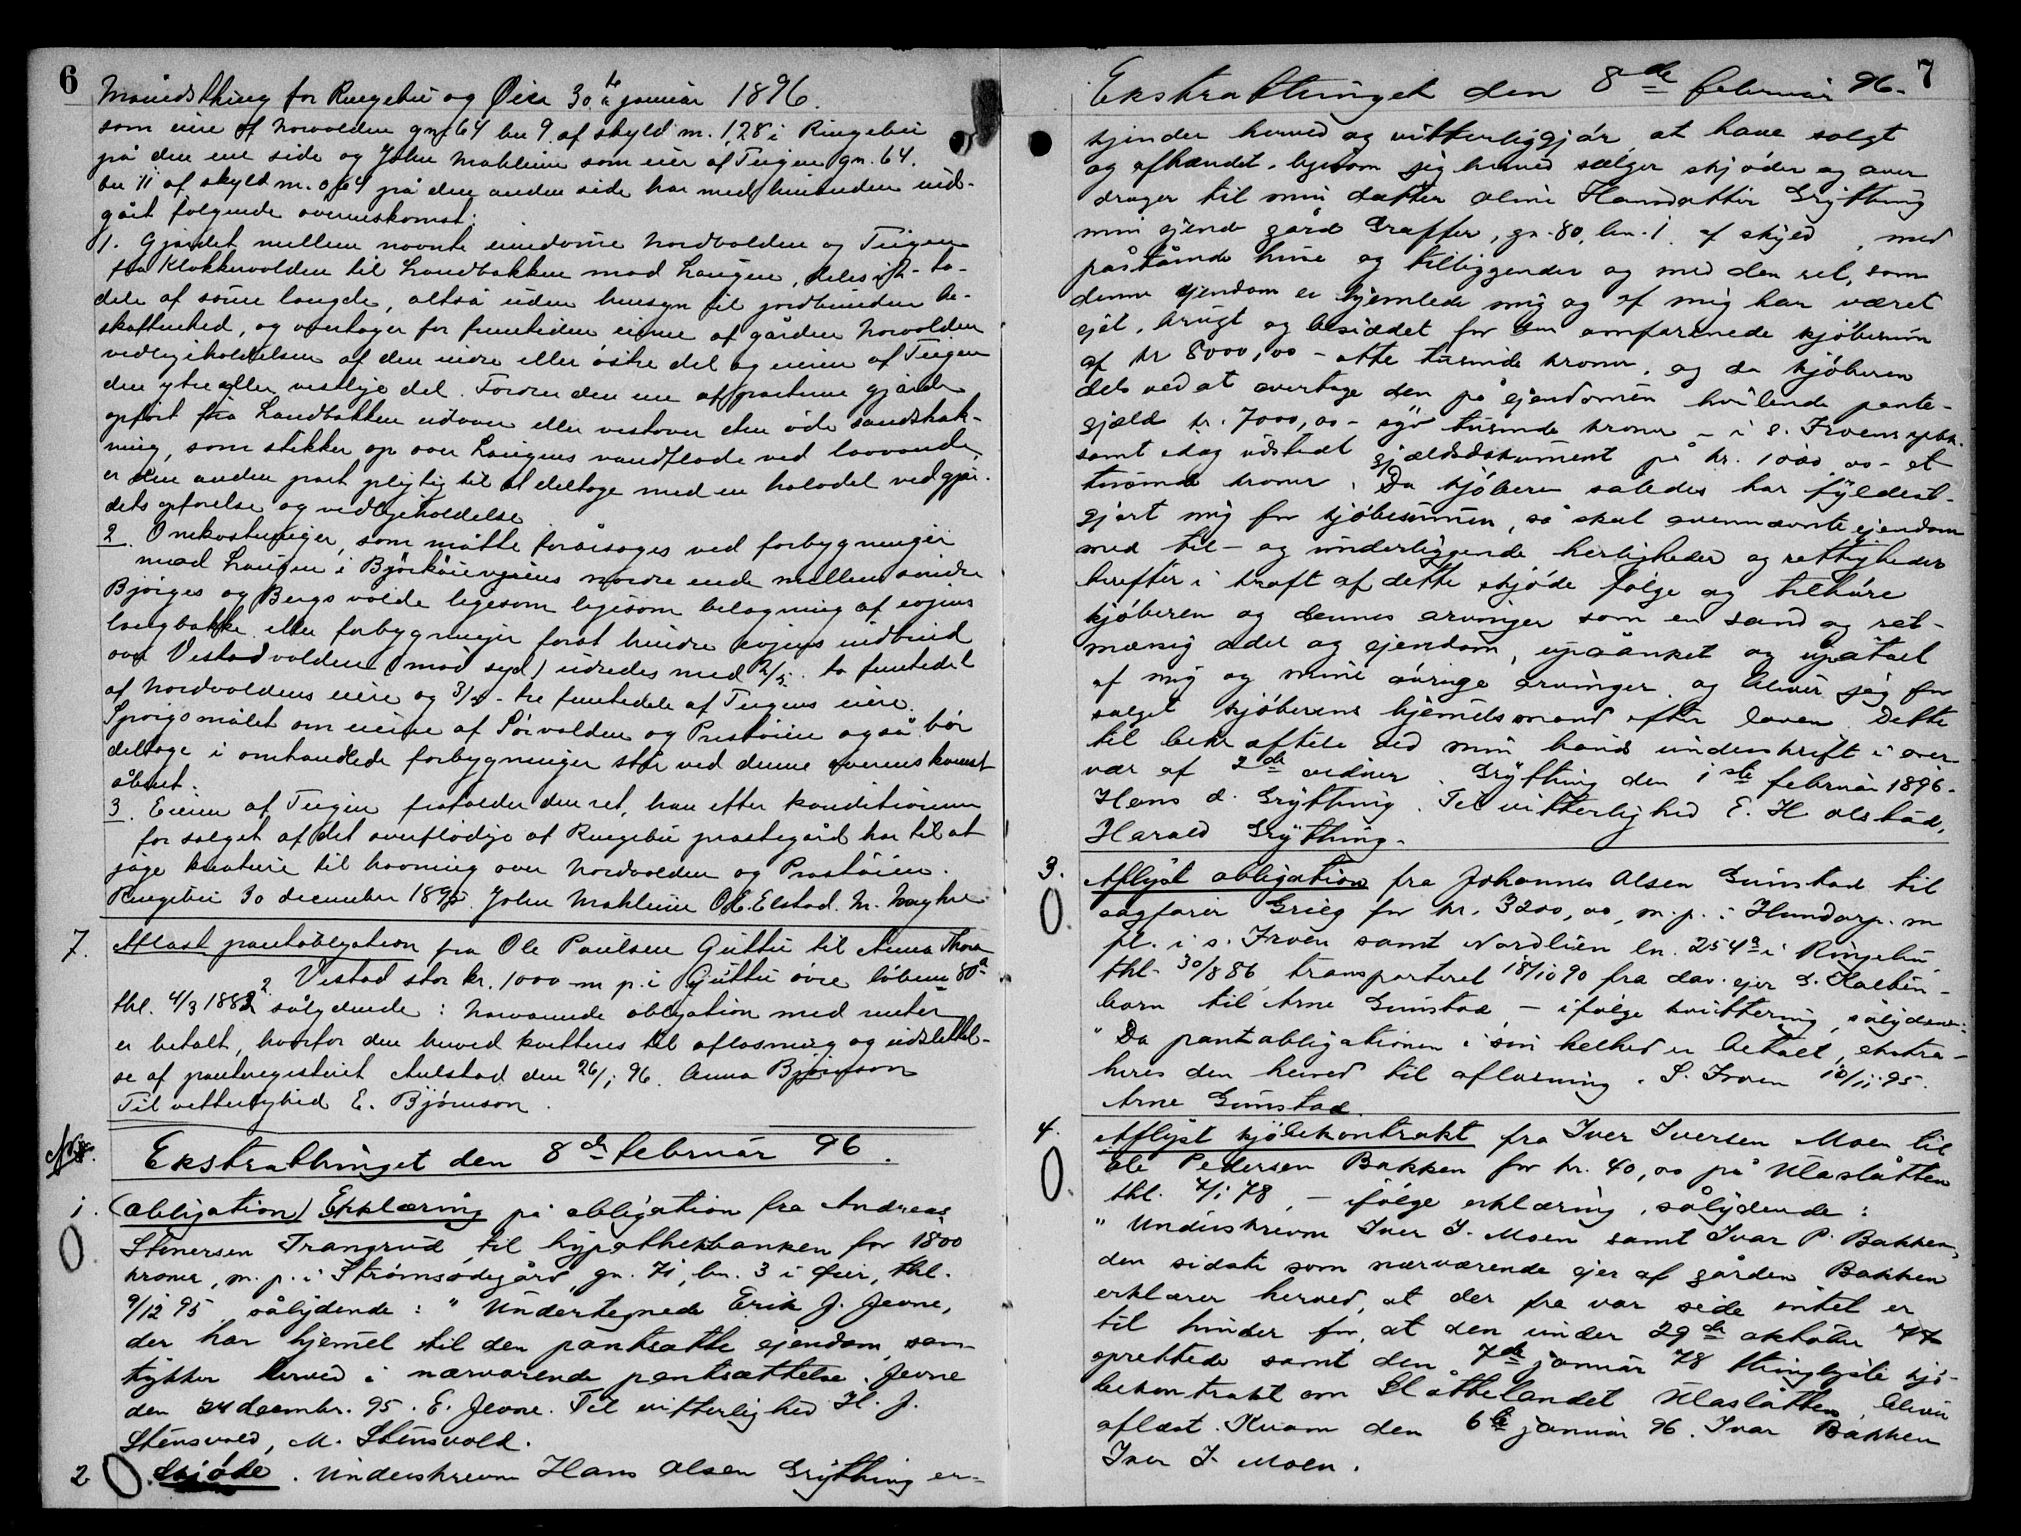 6
Månedsthing for Ringebu og Öier 30.te januar 1896.
som eier af Norvolden gn. 64 bn 9 af skyld m. 1,28 i Ringebu
på den ene side og John Mahleim som eier af Teigen gn. 64.
bn 11 af skyld m. 0,64 på den anden side har med hinanden ind-
gået følgende overenskomst:
1. Gjærdet mellem nævnte eiendomme Nordvolden og Teigen
fra Klokkervolden til Landbakken mod Laugen, deles i to
dele af samme længde, altså uden hensyn til jordbunden be-
skaffenhed, og overtager for fremtiden eieren af gården Norvolden
vedligeholdelsen af den indre eller östre del og eieren af Teigen
den ytre eller vestlige del. Fordrer den ene af parterne gjærde
opfört fra Landbakken udover eller vestover den öde sandstræk-
ning, som stikker op over Laugens vandflade ved lavvande,
er den anden part pligtig til at deltage med en halvdel ved gjær-
dets opførelse og vedligeholdelse
2. Omkostninger, som måtte forårsages ved forbygninger
mod Laugen i nordre ende mellem söndre
Bjørges og Bergs volde ligesom ligesom belægning af evjens
langbakke eller forbygninger forat hindre evjens indbrud
over Vestadvolden (mod syd) udredes med 2/5 to femtedel
af Nordvoldens eier og 3/5 - tre femtedele af Teigens eier.
Spørgsmålet om eierne af Sörvolden og Prestöien også bör
deltage i omhandlede forbygninger står ved denne overenskomst
åbent.
3. Eieren af Teigen frafalder den ret, han efter konditionerne
for salget af det overflödige af Ringebu prestegård har til at
jage kreature til havning over Nordvolden og Prestöien.
Ringebu 30 december 1895. John Mahleim O.E. Elstad. M.
7. Aflæst pantobligation fra Ole Paulsen Guttu til Anna Thora
Vestad stor kr. 1000 m. p. i Guttu övre löbenr 80a
thl. 4/3 1882 sålydende: Nærværende obligation med renter
er betalt, hvorfor den herved kvitteres til aflæsning og udslettel-
se af panteregisteret Aulstad den 26/1 96. Anna Björnson
Til vitterlighed E. Björnson.
Ekstrathinget den 8de februar 96.
1. (Obligation) Erklæring på obligation fra Andreas
Stenersen Trangrud til hypothekbanken for 1800
kroner, m. p. i Strømsödegård, gn. 71, bn. 3 i Öier, thl.
9/12 95 sålydende: "Undertegnede Erik J. Jevne,
der har hjemel til den pantsatte ejendom, sam-
tykker herved i nærværende pantsættelse. Jevne
den 24 decembr. 95. E. Jevne. Til vitterlighed H. J.
Stensvold, M. Stensvold.
2 Skjöde. Underskrevne Hans Olsen Grytting er-
7
Ekstrathinget den 8de februar 96.
kjender herved og vitterliggjör at have solgt
og afhændet, ligesom jeg herved sælger skjöder og over
drager til min datter Oline Hansdatter Grytting
min ejende gård Graffer, gn. 80, bn. 1 af skyld , med
påstående huse og tilliggender og med den ret, som
denne ejendom er hjemlede mig og af mig har været
ejet, brugt og besiddet for den omforenede kjöbesum
af kr 8000,00 - otte tusinde kroner, og da kjöberen
dels ved at overtage den på ejendommen hvilende pante-
gjæld kr. 7000,00 - syv tusinde kroner - i s. Froens spbk.
samt idag udstedt gjældsdokument på kr. 1000,00 - et
tusinde kroner. Da kjöberen således har fyldest-
gjort mig for kjöbesummen, så skal ovennævnte ejendom
med til- og underliggende herligheder og rettigheder
herefter i kraft af dette skjöde fölge og tilhöre
kjöberen og dennes arvinger som en sand og ret-
mæssig odel og ejendom, upåanket og upåtalt
af mig og mine övrige arvinger, og bliver jeg for
salget kjöberens hjemelsmand efter loven. Dette
til bekræftelse med min hånds underskrift i over-
vær af 2de vidner. Grytting den 1ste februar 1896.
Hans O. Grytting. Til vitterlighed E. H Olstad,
Harald Grytting.
3. Aflyst obligation fra Johannes Olsen Gunstad til
sagförer Grieg for kr. 3200,00, m. p. i Hundorp m
pl. i s. Froen samt Nordlien ln. 254a i Ringebu,
thl. 30/8 86, transporteret 18/10 90 fra dav. ejer S. Kalben-
born til Arne Gunstad - ifölge kvittering, sålydende:
"Da pantobligationen i sin helhed er betalt, ekstra-
heres den herved til aflæsning. S. Froen 10/11 95.
Arne Gunstad.
4. Aflyst kjöbekontrakt fra Iver Iversen Moen til
Ole Pedersen Bakken for kr. 40,00 på Ulaslåtten
thl. 7/1 78, - ifölge erklæring, sålydende:
"Underskrevne Iver I. Moen samt Ivar P. Bakken,
den sidste som nærværende ejer af gården Bakken
erklærer herved, at der fra vor side intet er
til hinder for, at den under 29de oktober 77
oprettede samt den 7de januar 78 thinglyste kjö-
bekontrakt om Slåttelandet Ulaslåtten, bliver
aflæst. Kvam den 6te januar 96. Ivar Bakken
Iver I. Moen.